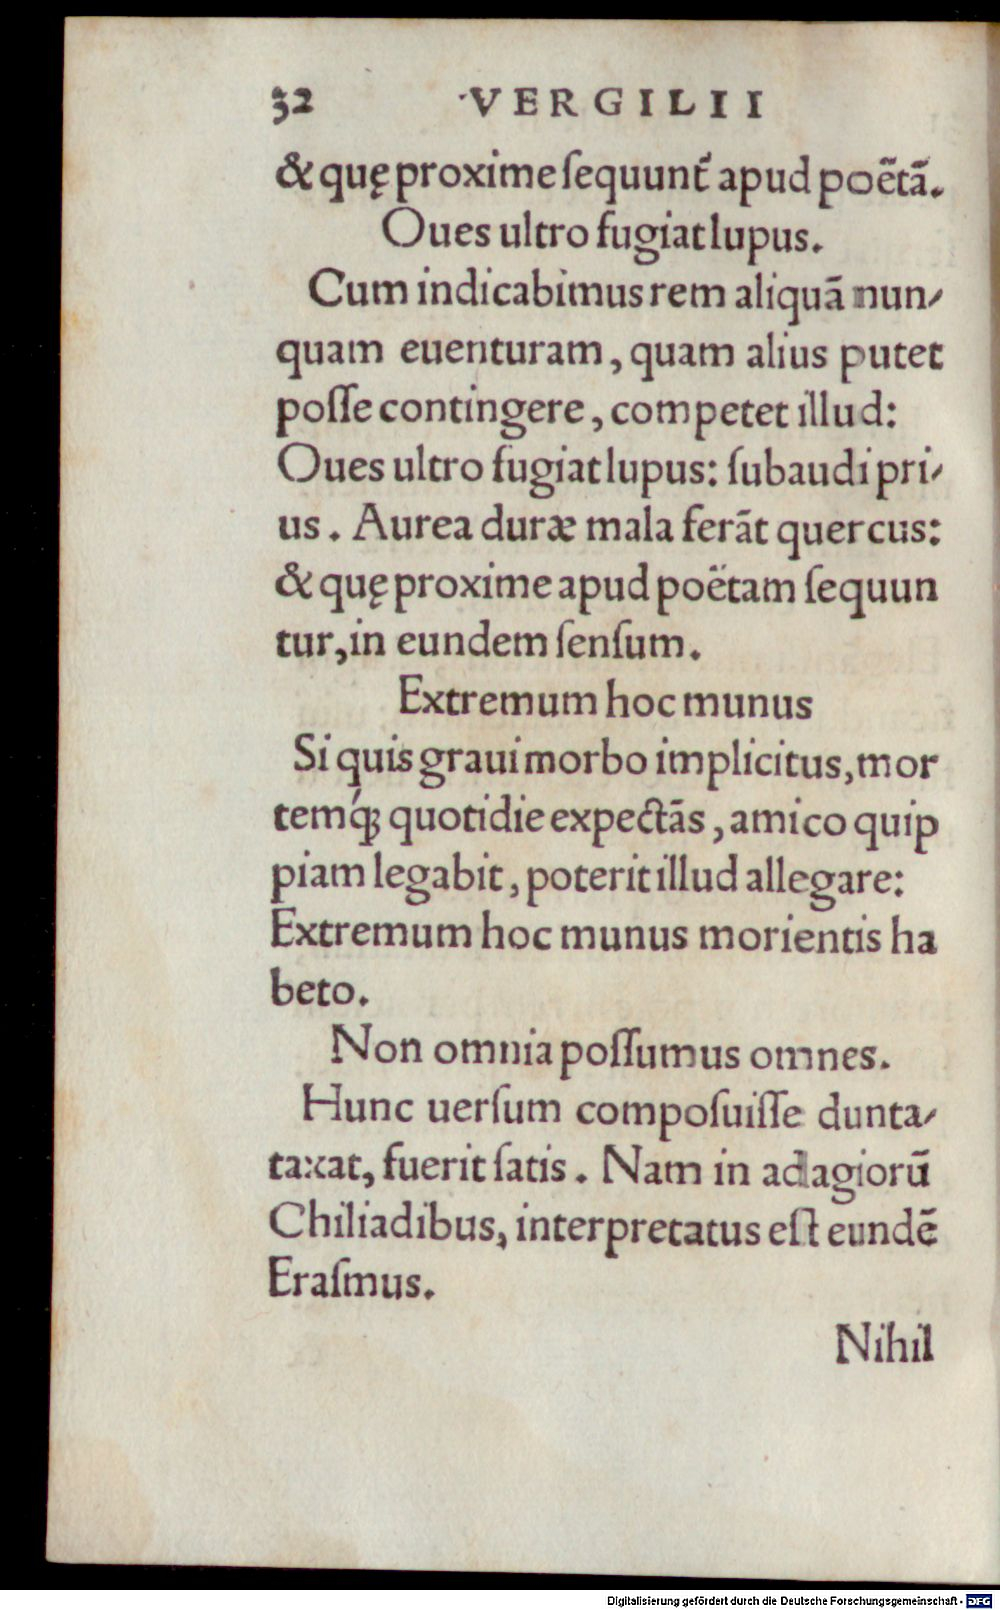 32 VERGILII
& quę proxime ſequunt᷑ apud poẽtã.
Oues ultro fugiat lupus.
Cum indicabimus rem aliquã nun⸗
quam euenturam, quam alius putet
poſſe contingere, competet illud:
Oues ultro fugiat lupus: ſubaudi pri⸗
us. Aurea duræ mala ferãt quercus:
& quę proxime apud poëtam ſequun
tur, in eundem ſenſum.
Extremum hoc munus
Si quis graui morbo implicitus, mor
temq́ꝫ quotidie expectãs, amico quip
piam legabit, poterit illud allegare:
Extremum hoc munus morientis ha
beto.
Non omnia poſſumus omnes.
Hunc uerſum compoſuiſſe dunta⸗
taxat, fuerit ſatis. Nam in adagiorũ
Chiliadibus, interpretatus eſt eundẽ
Eraſmus.
Nihil
Digitalisierung gefördert durch die Deutsche Forschungsgemeinschaft - DFG